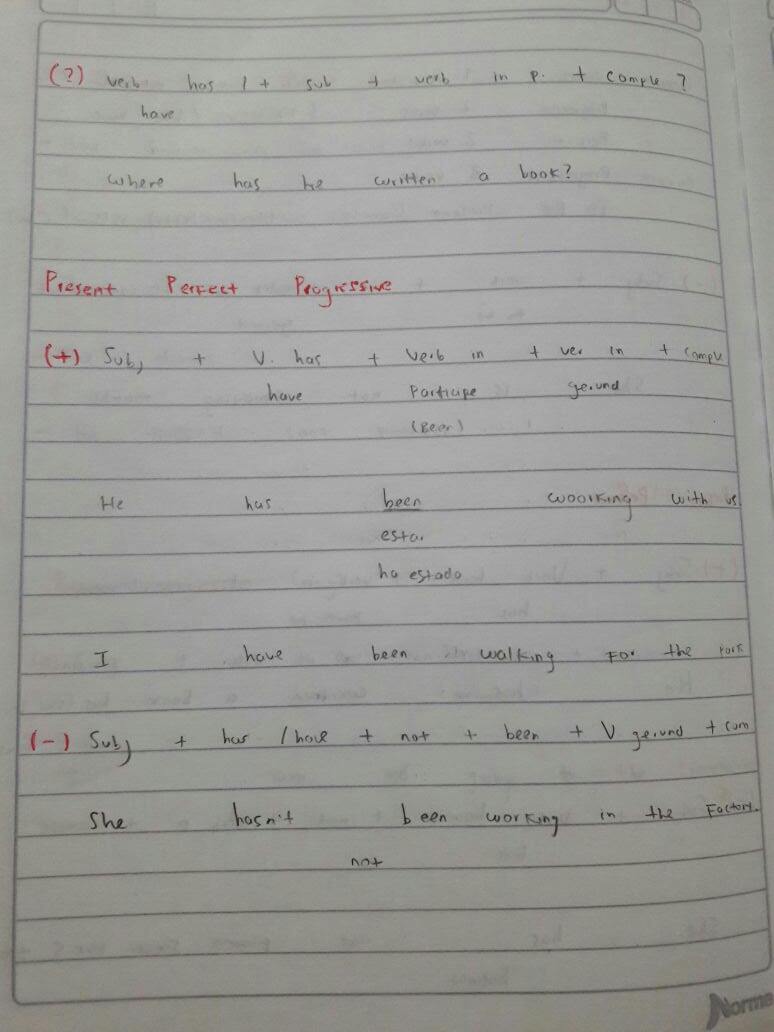 (?) verb has / + sub + verb in p. + comple ?
have
where has he written a book?
Present Perfect Progressive
(+) Subj + V. has + Verb in + ver in + comple
have Participe gerund
(Been)
He has been woorking with us
estar
ha estado
I have been walking For the park
(-) Subj + has / have + not + been + V gerund + com
She hasn't been working in the Factory.
not
Norma